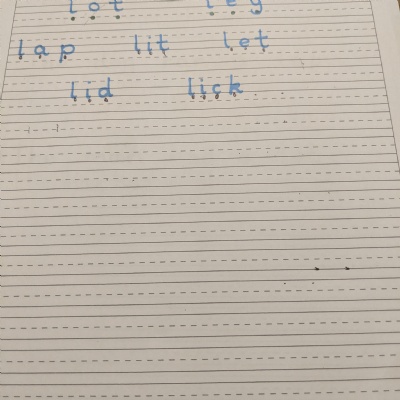 lot leg
lap lit let
lid lick